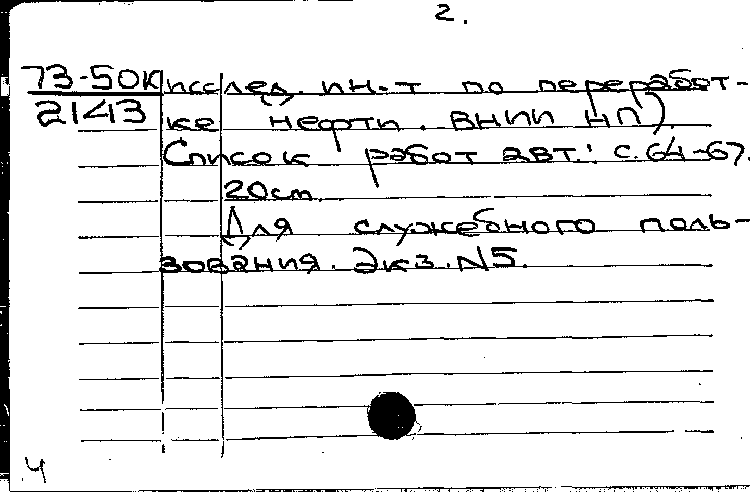 2.
73-50К исслед. ин-т по переработ-
2143 ке нефти. ВНИИ НП).
Список работ авт.: с. 64-67.
20см.
Для служебного поль-
зования. Экз. №5.
4